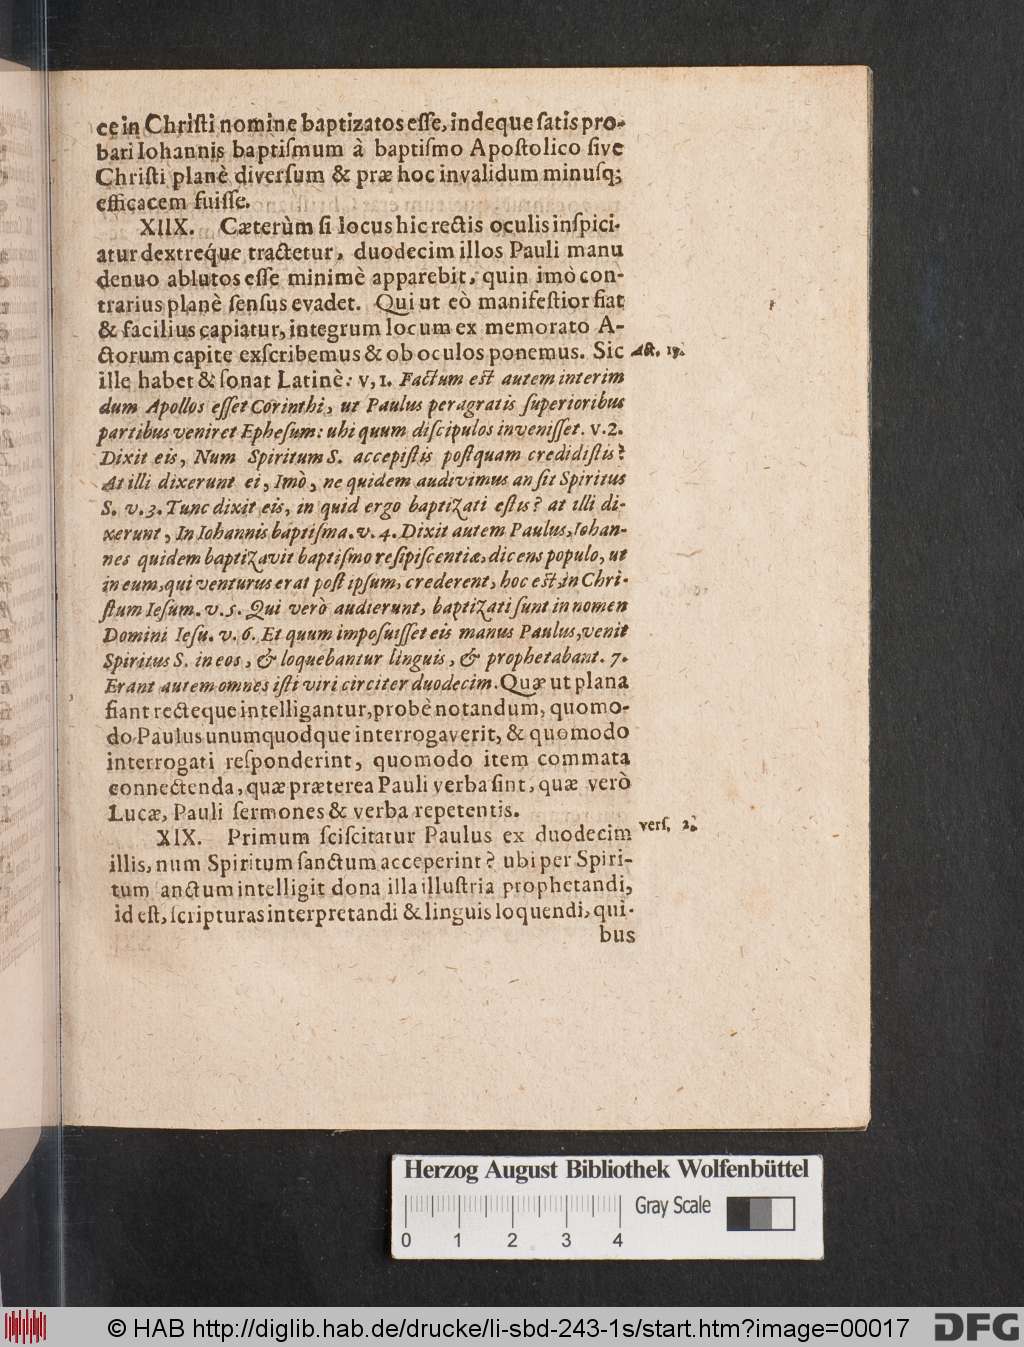 ce in Chriſti nomine baptizatos eſſe, indeque ſatis pro-
bari Iohannis baptiſmum à baptiſmo Apoſtolico ſive
Chriſti planè diverſum & præ hoc invalidum minuſq;
efficacem fuiſſe.
XIIX. Cæterùm ſi locus hic rectis oculis inſpici-
atur dextreq́ue tractetur, duodecim illos Pauli manu
denuo ablutos eſſe minimè apparebit, quin imò con-
trarius planè ſenſus evadet. Qui ut eò manifeſtior fiat
& facilius capiatur, integrum locum ex memorato A-
ctorum capite exſcribemus & ob oculos ponemus. Sic Act. 19.
ille habet & ſonat Latinè: v, 1. Factum eſt autem interim
dum Apollos eſſet Corinthi, ut Paulus peragratis ſuperioribus
partibus veniret Epheſum: ubi quum diſcipulos inveniſſet. v. 2.
Dixit eis, Num Spiritum S. accepiſtis poſtquam credidiſtis?
At illi dixerunt ei, Imò, ne quidem audivimus an ſit Spiritus
S. v. 3. Tunc dixit eis, in quid ergo baptizati eſtis? at illi di-
xerunt, In Iohannis baptiſma. v. 4. Dixit autem Paulus, Iohan-
nes quidem baptizavit baptiſmo reſipiſcentiæ, dicens populo, ut
in eum, qui venturus erat poſt ipſum, crederent, hoc eſt, in Chri-
ſtum Ieſum. v. 5. Qui verò audierunt, baptizati ſunt in nomen
Domini Ieſu. v. 6. Et quum impoſuiſſet eis manus Paulus, venit
Spiritus S. in eos, & loquebantur linguis, & prophetabant. 7.
Erant autem omnes iſti viri circiter duodecim. Quæ ut plana
fiant recteque intelligantur, probè notandum, quomo-
do Paulus unumquodque interrogaverit, & quomodo
interrogati reſponderint, quomodo item commata
connectenda, quæ præterea Pauli verba ſint, quæ verò
Lucæ, Pauli ſermones & verba repetentis.
XIX. Primum ſciſcitatur Paulus ex duodecim verſ. 2.
illis, num Spiritum ſanctum acceperint? ubi per Spiri-
tum ſanctum intelligit dona illa illuſtria prophetandi,
id eſt, ſcripturas interpretandi & linguis loquendi, qui-
bus
Herzog August Bibliothek Wolfenbüttel
Gray Scale
0 1 2 3 4
© HAB http://diglib.hab.de/drucke/li-sbd-243-1s/start.htm?image=00017
DFG